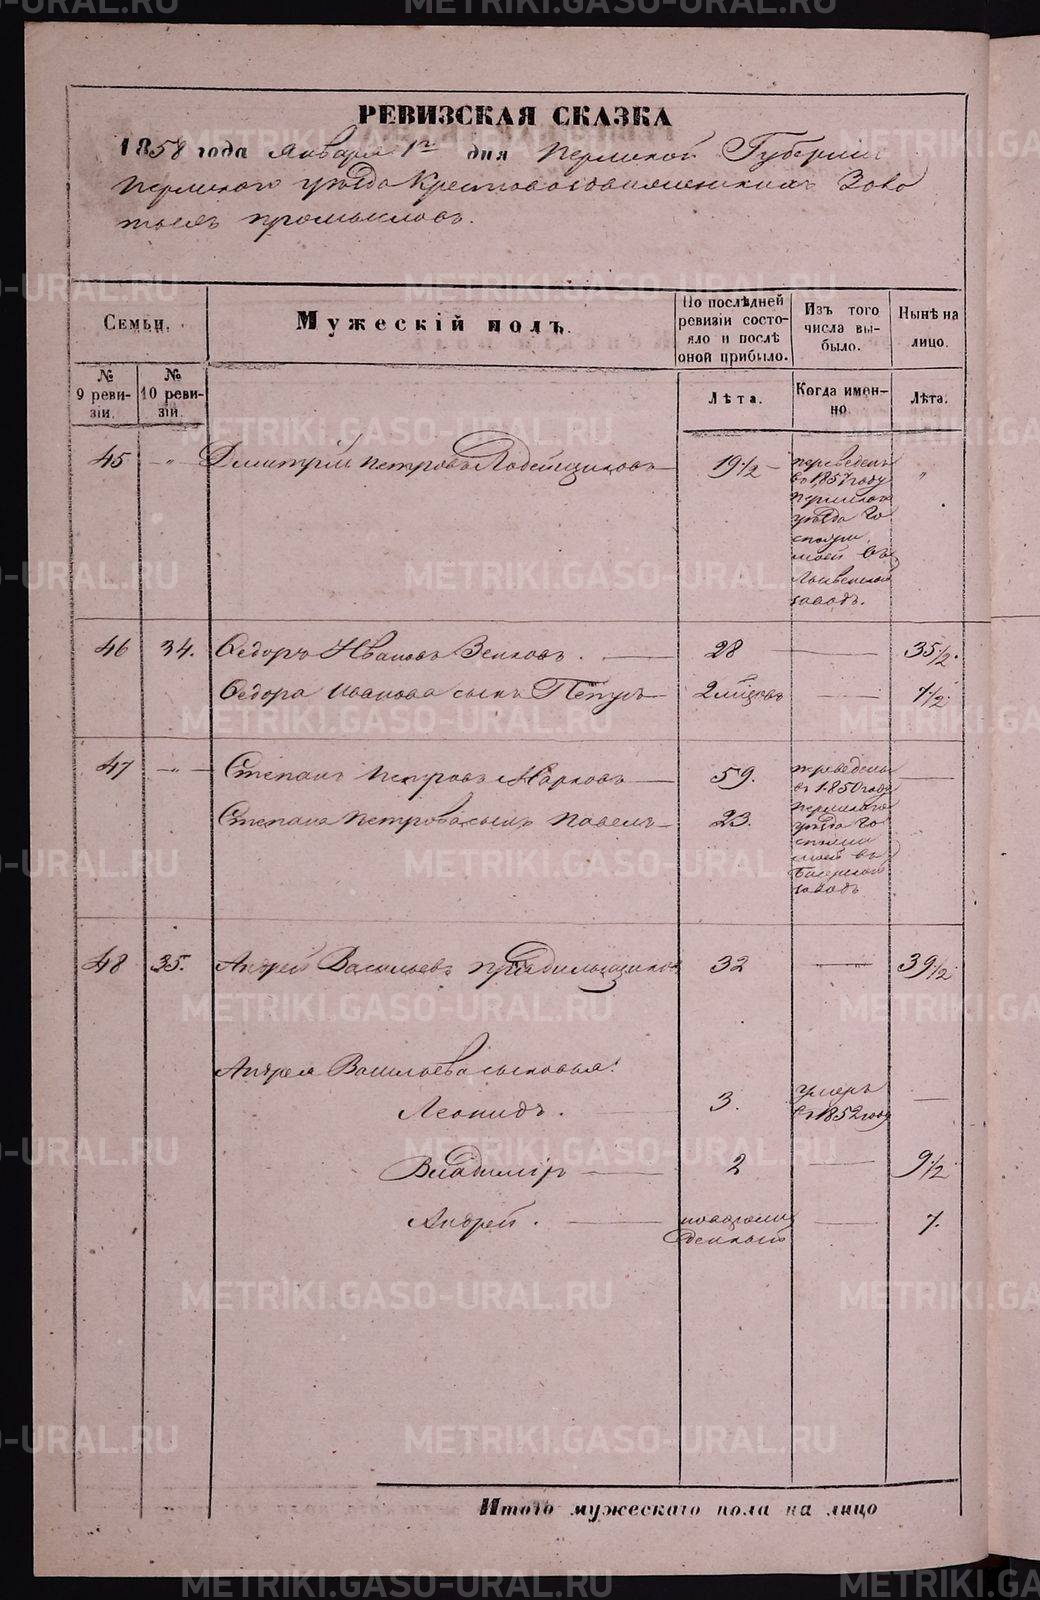 РЕВИЗСКАЯ СКАЗКА
1858 года Января 1го дня Пермской Губернии
Пермского уезда Крестовоздвиженских Золо
тых промыслов.
Семьи.
Мужескій полъ.
По послѣдней ревизіи состояло и послѣ оной прибыло.
Изъ того числа выбыло.
Нынѣ на лицо.
№ 9 ревизіи.
№ 10 ревизіи.
Лѣта.
Когда именно
Лѣта.
45 " Дмитрій Петровъ 19½ "
переведенъ
въ 1857 году
Пермского
уезда Го
споди
ной въ
Лысвенской
заводъ.
46 34. Ѳедоръ Ивановъ Зенковъ. 28 35½.
Ѳедора Иванова сынъ Петръ 2 мѣсяцовъ 7½
47 " Степанъ Петровъ Марковъ 59.
переведены
въ 1850 году
Степана Петрова сынъ Павелъ 23.
Пермского
уезда Го
въ
Бисерской
заводъ
48 35. Андрей Васильевъ Прядильщиковъ 32 39½
Андрея Васильева сыновья:
Леонидъ. 3.
умеръ
въ 1852 году
Владимиръ 2 9½
Андрей. новорож
денный 7.
Итого мужескаго пола на лицо
METRIKI.GASO-URAL.RU